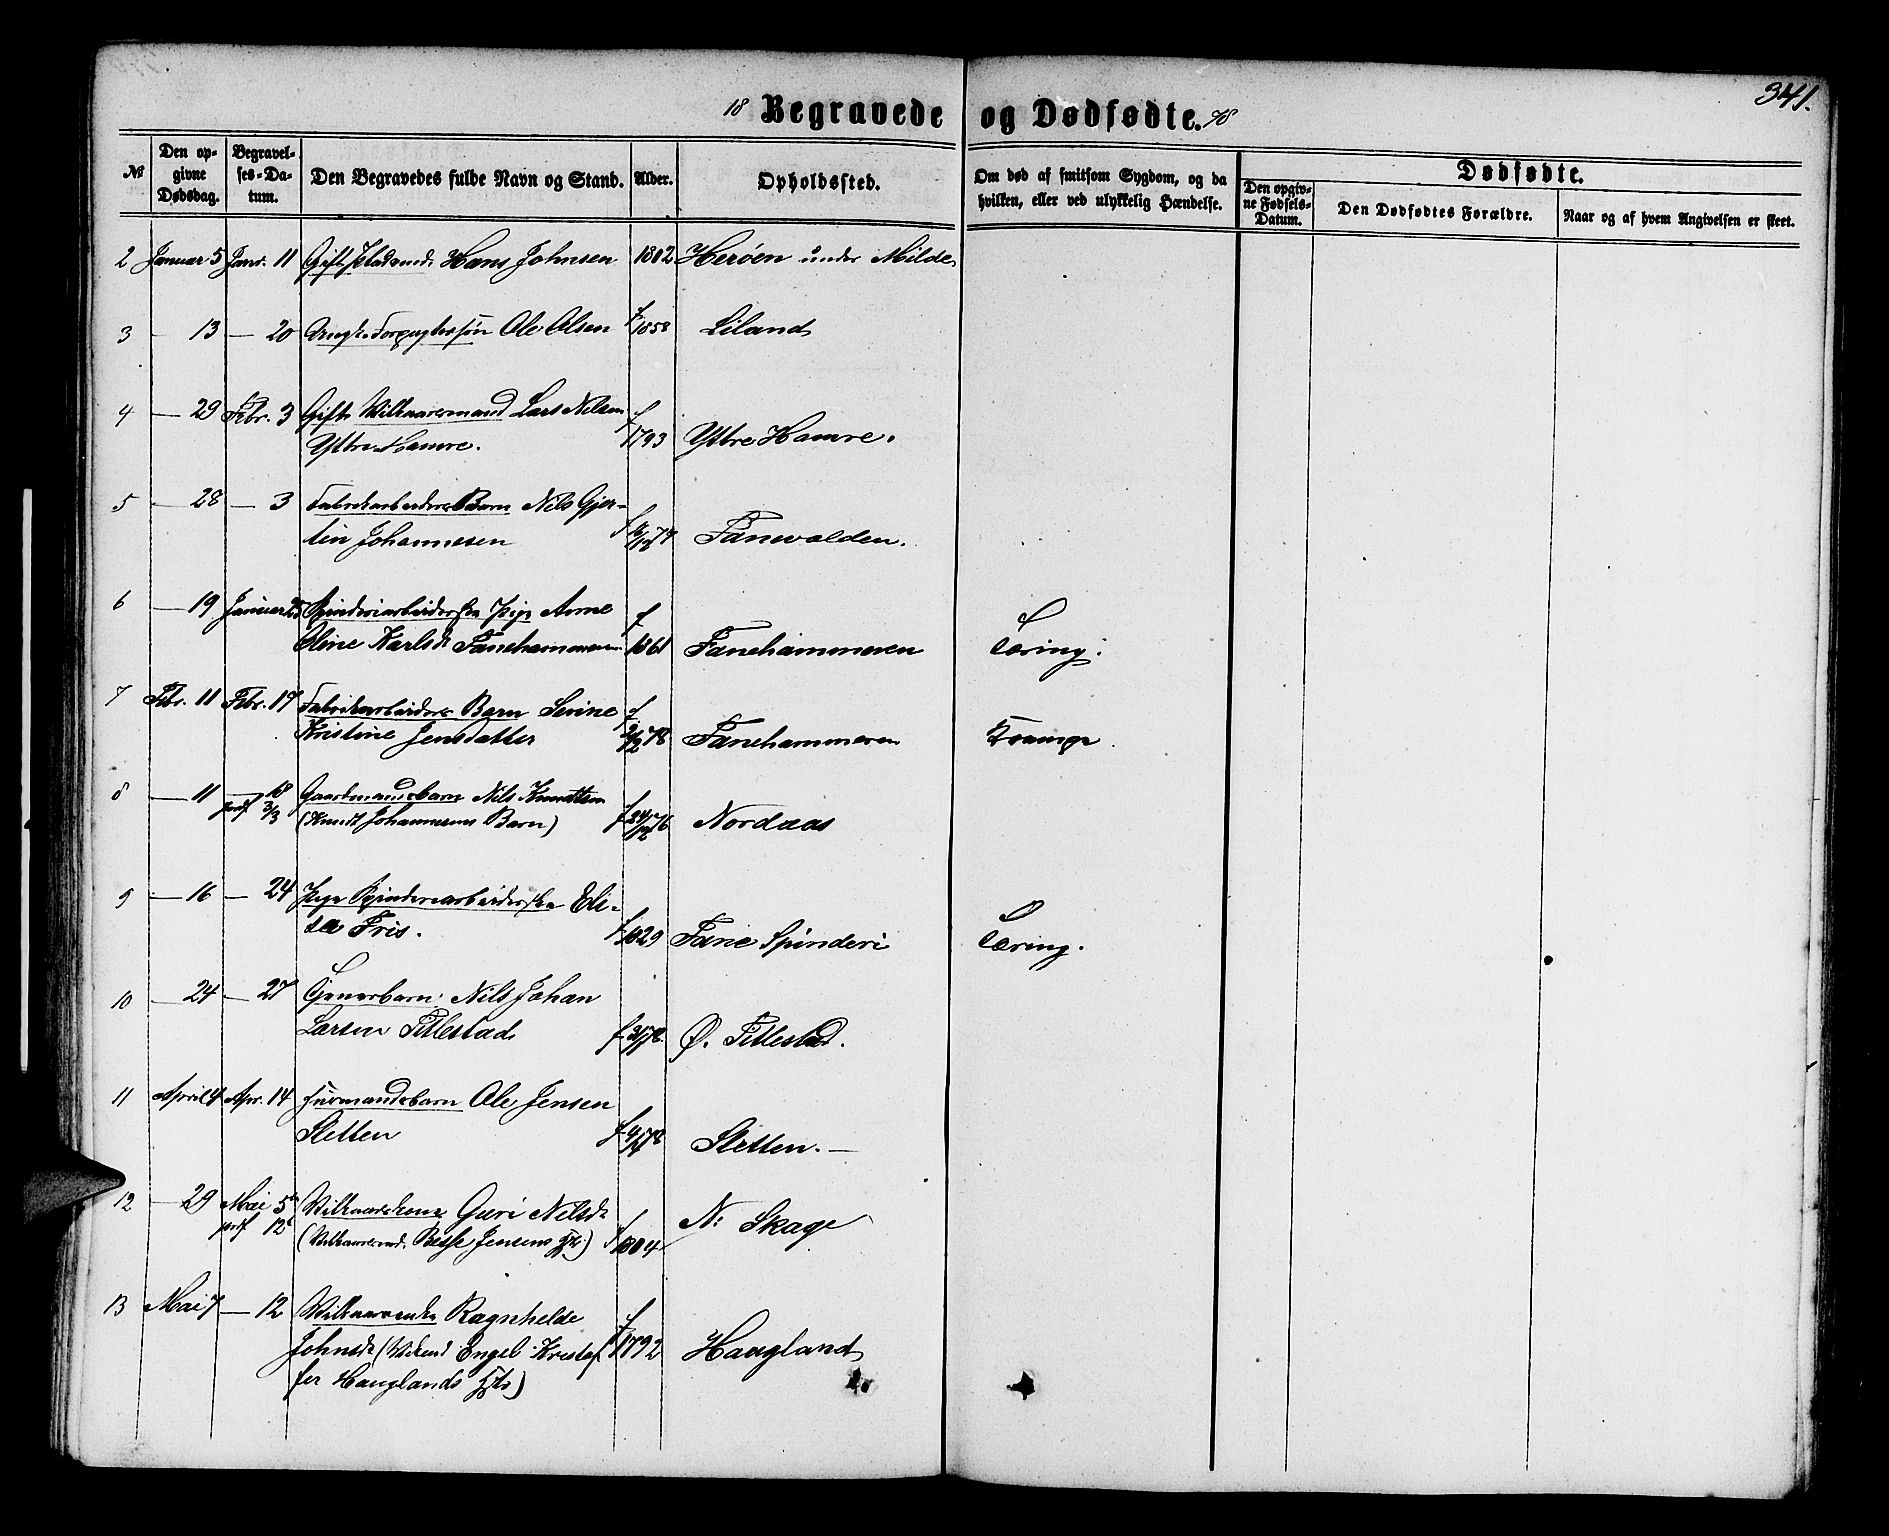 341.
18 Begravede og Dødfødte. 78
№
Den opgivne Dødsdag.
Begravelses-Datum.
Den Begravedes fulde Navn og Stand.
Alder.
Opholdssted.
Om død af smitsom Sygdom, og da hvilken, eller ved ulykkelig Hændelse.
Dødfødte.
Den opgivne Fødsels-Datum.
Den Dødfødtes Forældre.
Naar og af hvem Angivelsen er skeet.
2 Januar 5 Janr. 11 Gift Pladsmd. Hans Johnsen 1812 Herøen under Milde
3 — 13 — 20 Ungk. Forpagtersøn Ole Olsen f 1858 Liland
4 — 29 Febr. 3 Gift Vilkaarsmand Lars Nilsen f
Yttre Hamre. 1793 Yttre Hamre.
5 — 28 — 3 Fabrikarbeiders Barn Nils Gjer-
tin Johannesen f Fanevolden.
6 — 19 Januar 25 Spinderiarbeiderske Pige Anne f
Oline Karlsd. Fanehammeren 1861 Fanehammeren Tæring.
7 Febr. 11 Febr. 17 Fabrikarbeiders Barn Serine f
Kristine Jensdatter Fanehammeren Krampe
8 — 11 — 18 Gaardmandsbarn Nils Knudtsen
jordf 3/3 (Knudt Johannesens Barn) f 24/12 76 Nordaas
9 — 16 — 24 Pige Spinderiarbeiderske Eli-
sa Fris. f 1829 Fane Spinderi Tæring.
10 — 24 — 27 Gaardbarn Nils Johan
Larsen Titlestad f Ø. Titlestad.
11 April 4 Apr. 14 Husmandsbarn Ole Jensen
Sletten f 4/4 78 Sletten. —
12 — 29 Mai 5te Vilkaarskone Guri Nilsd.
jordf 12te (Vilkaarsmd. Besse Jensens Hst.) f 1804 N: Skage
13 Mai 7 — 12 Vilkaarsenke Ragnhilde f
Johnsd. ( Engel Kristof 1792 Haugland
fer Hauglands Hst)